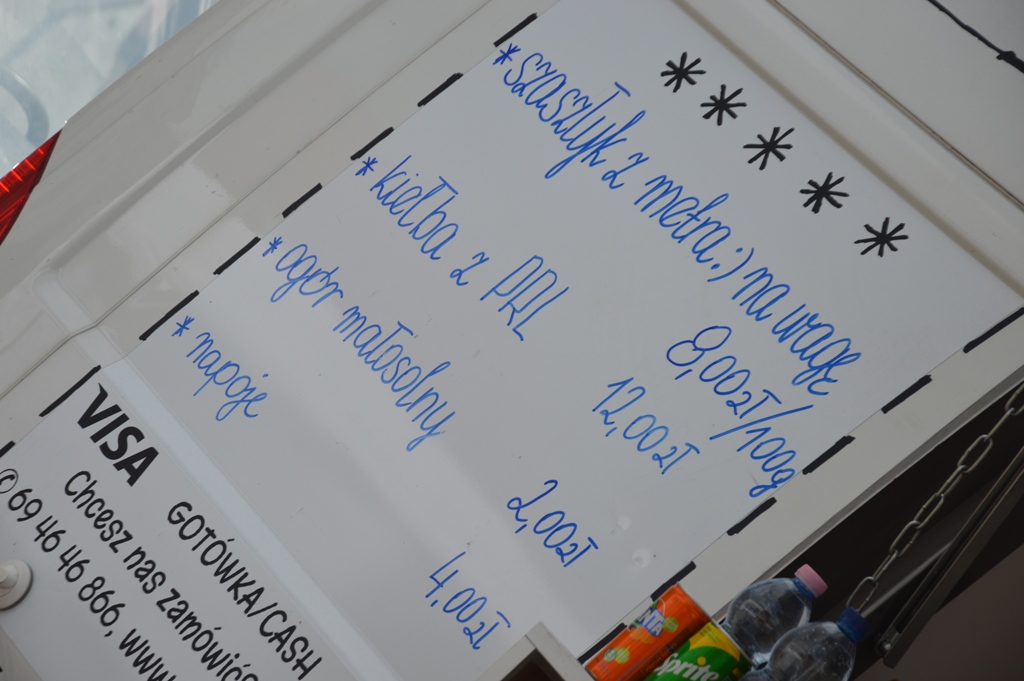 * szaszłyk z metra :) na wagę
8,00zł/100g
* kiełba z PRL 12,00zł
* ogór małosolny 2,00zł
* napoje 4.00zł
VISA GOTÓWKA/CASH
Chcesz nas zamówić
✆ 69 46 46 866, www
Sprite